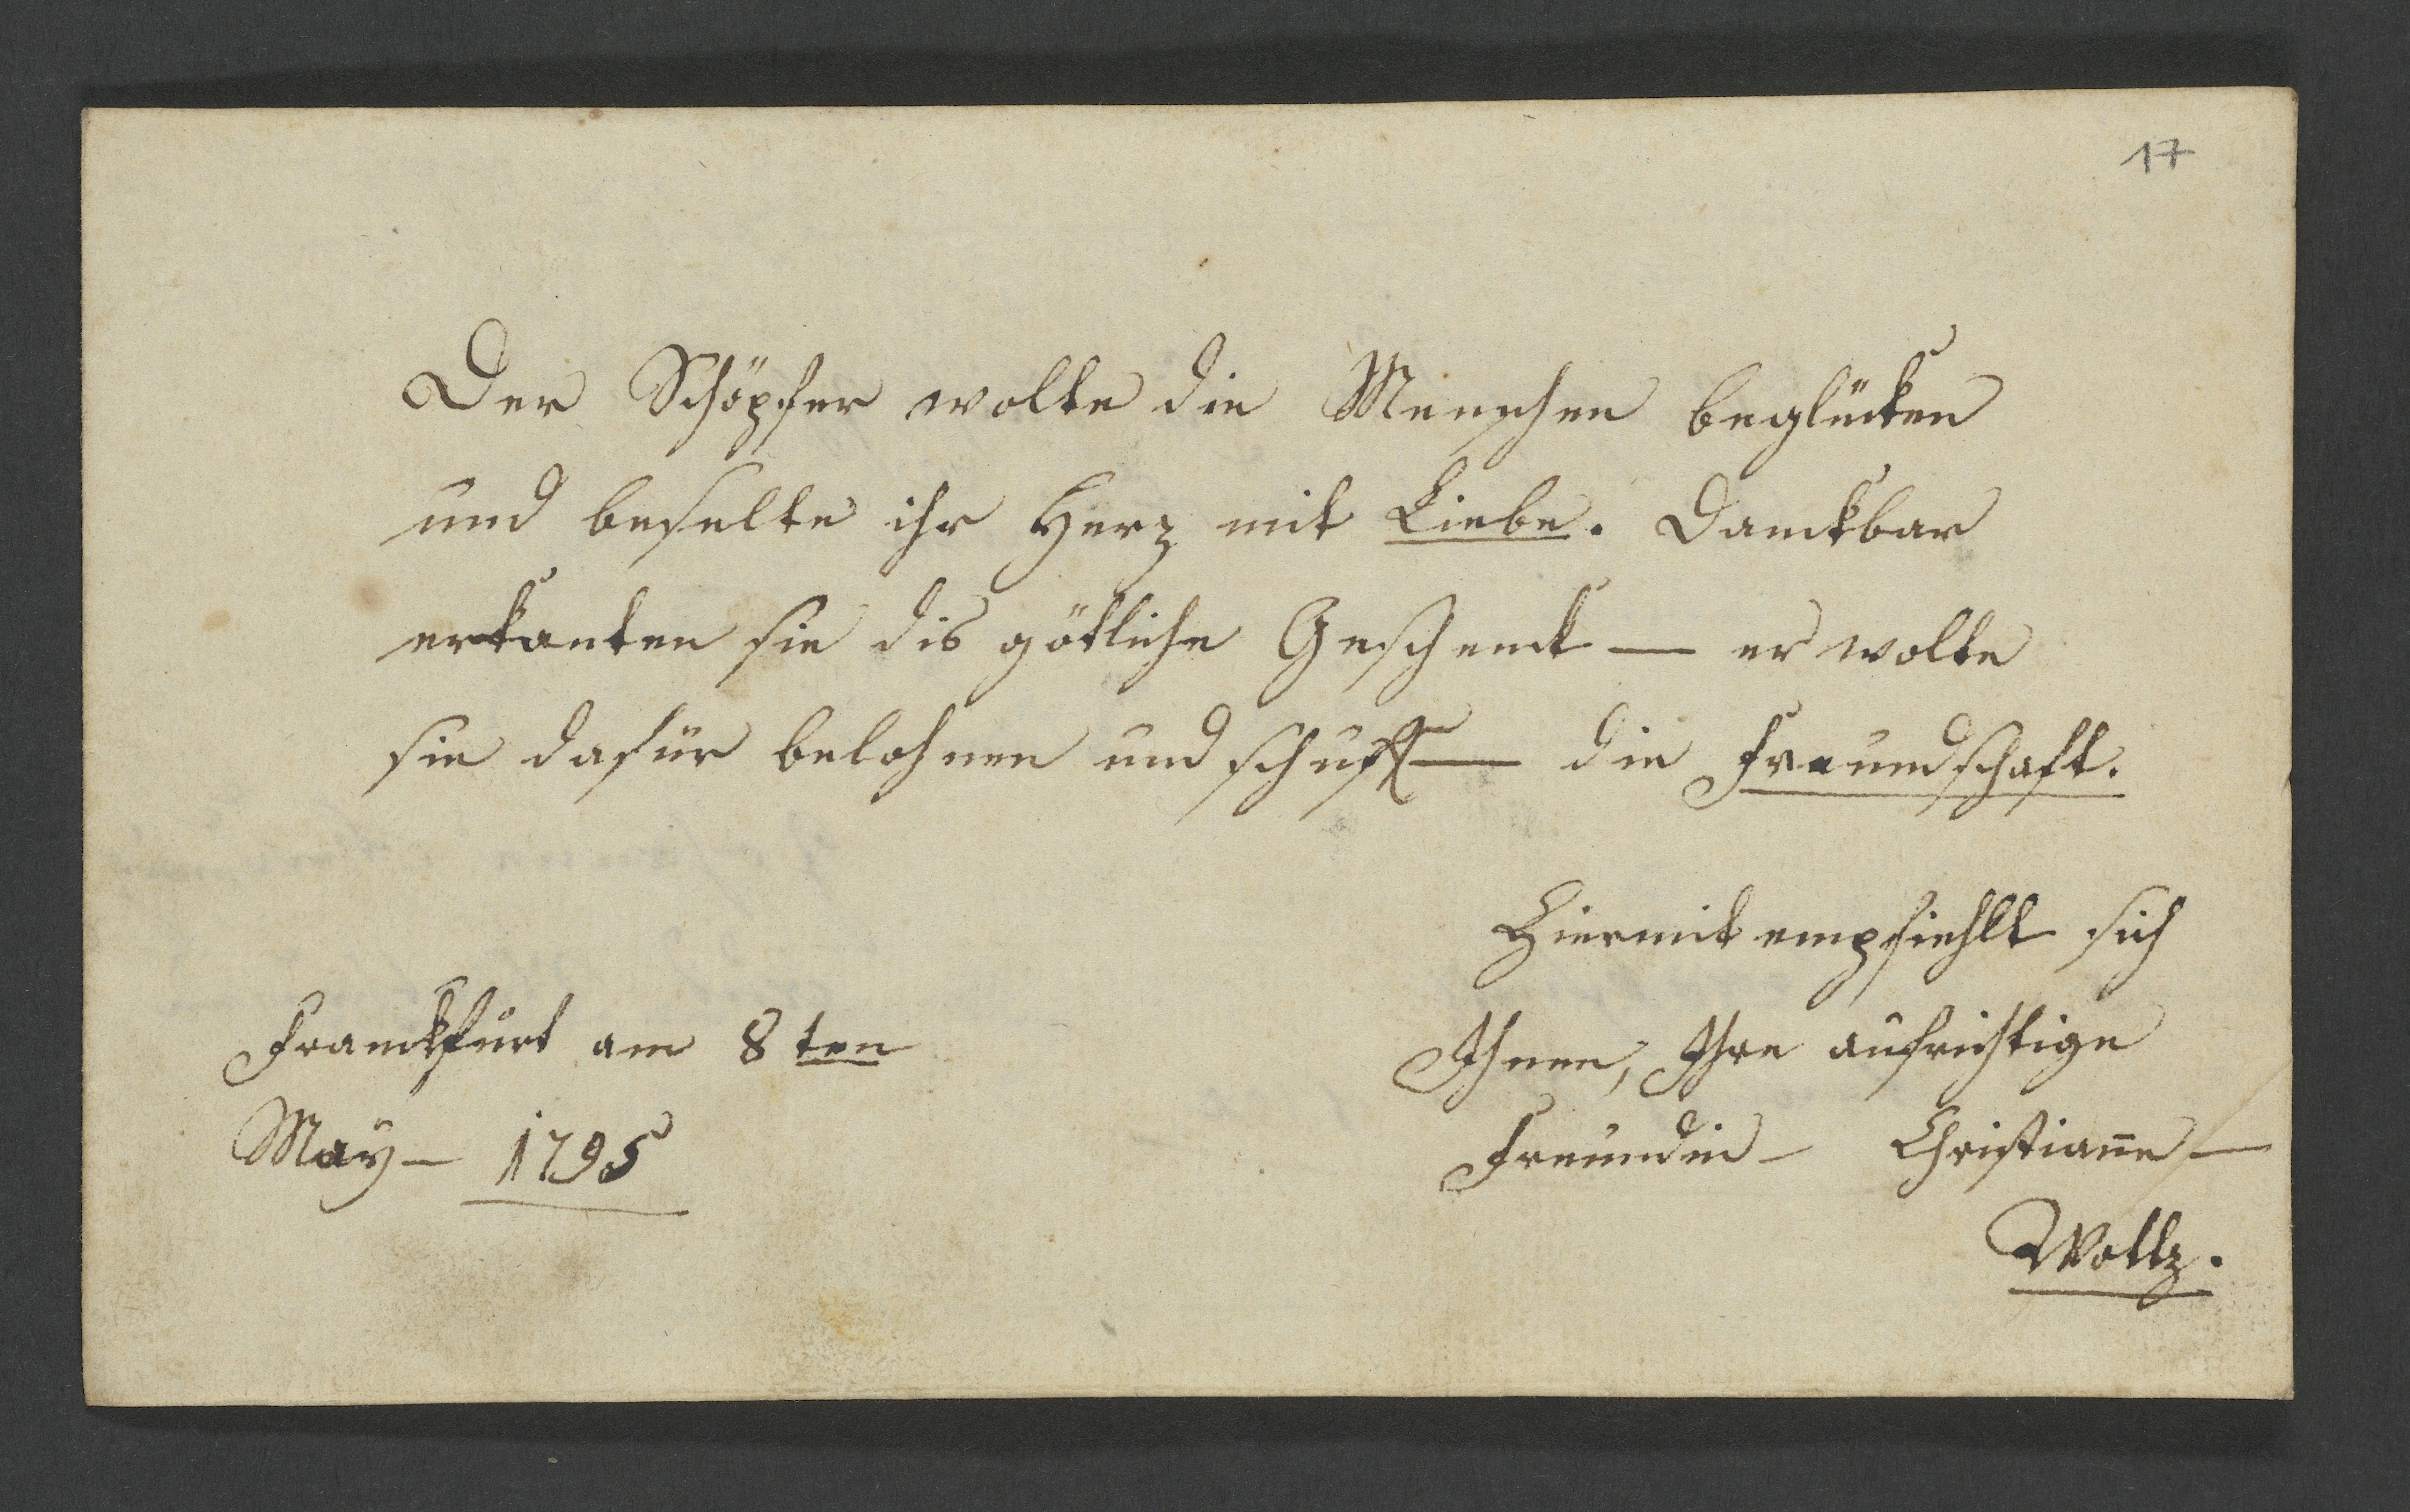 17
Der Schöpfer wolte die Menschen beglücken
und beselte ihr Herz mit Liebe. Danckbar
erkanten sie dis götliche Geschenck — er wolte
sie dafür belohnen und schuff — die Freundschaft.
Hiermit empfiehlt sich
Ihnen, Ihre aufrichtige
Freundin — Christiane —
Woltz.
Franckfurt am 8ten
May — 1795